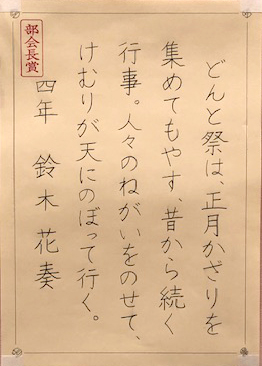 部会長賞
どんと祭は、正月かざりを
集めてもやす、昔から続く
行事。人々のねがいをのせて、
けむりが天にのぼって行く。
四年　鈴木花奏